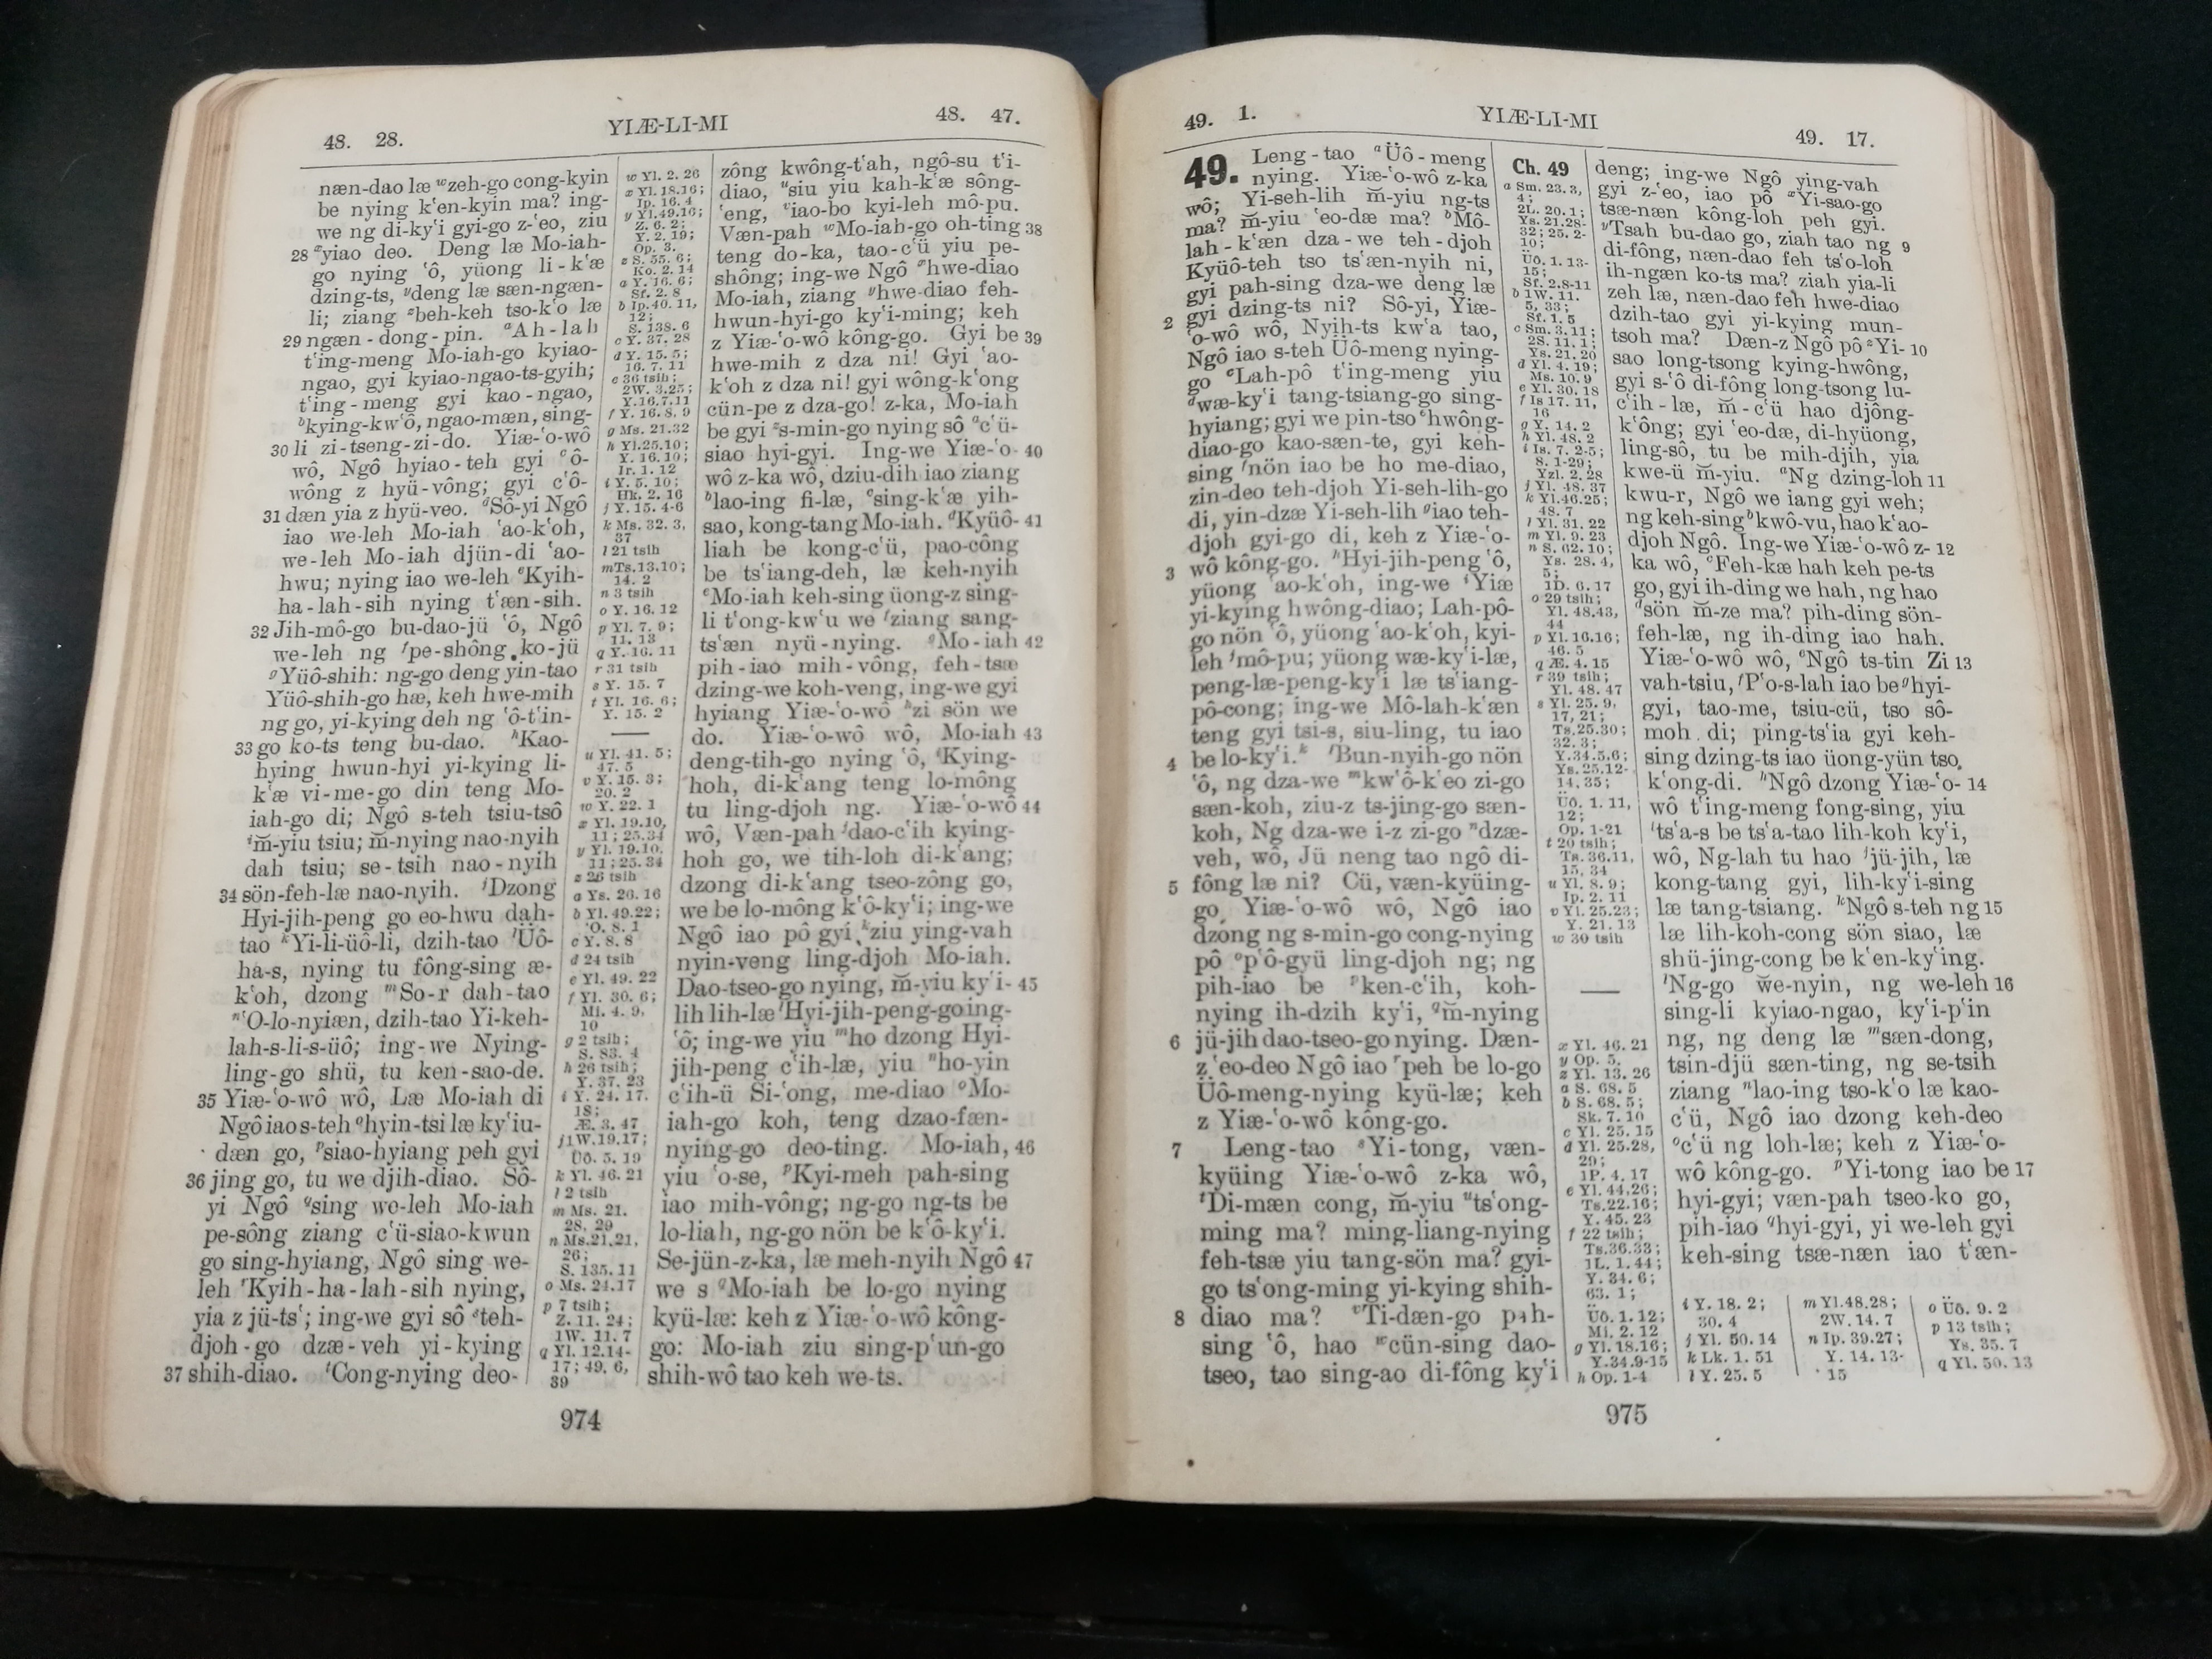 48. 28.
YIÆ-LI-MI
48. 47.
næn-dao læ ʷzeh-go cong-kyin
be nying k‘en-kyin ma? ing-
we ng di-ky‘i gyi-go z-‘eo, ziu
28 ˣyiao deo. Deng læ Mo-iah-
go nying ‘ô, yüong li-k‘æ
dzing-ts, ʸdeng læ sæn-ngæn-
li; ziang ᶻbeh-keh tso-k‘o læ
29 ngæn-dong-pin. ᵃAh-lah
t‘ing-meng Mo-iah-go kyiao-
ngao, gyi kyiao-ngao-ts-gyih;
t‘ing-meng gyi kao-ngao,
ᵇkying-kw‘ô, ngao-mæn, sing-
30 li zi-tseng-zi-do. Yiæ-‘o-wô
wô, Ngô hyiao-teh gyi ᶜô-
wông z hyü-vông; gyi c‘ô-
31 dæn yia z hyü-veo. ᵈSô-yi Ngô
iao we-leh Mo-iah ‘ao-k‘oh,
we-leh Mo-iah djün-di ‘ao-
hwu; nying iao we-leh ᵉKyih-
ha-lah-sih nying t‘æn-sih.
32 Jih-mô-go bu-dao-jü ‘ô, Ngô
we-leh ng ᶠpe-shông ko-jü
ᵍYüô-shih: ng-go deng yin-tao
Yüô-shih-go hæ, keh hwe-mih
ng go, yi-kying deh ng ‘ô-t‘in-
33 go ko-ts teng bu-dao. ʰKao-
hying hwun-hyi yi-kying li-
k‘æ vi-me-go din teng Mo-
iah-go di; Ngô s-teh tsiu-tsô
ⁱm̆-yiu tsiu; m̆-nying nao-nyih
dah tsiu; se-tsih nao-nyih
34 sön-feh-læ nao-nyih. ʲDzong
Hyi-jih-peng go eo-hwu dah-
tao ᵏYi-li-üô-li, dzih-tao ˡÜô-
ha-s, nying tu fông-sing æ-
k‘oh, dzong ᵐSo-r dah-tao
ⁿ‘O-lo-nyiæn, dzih-tao Yi-keh-
lah-s-li-s-üô; ing-we Nying-
ling-go shü, tu ken-sao-de.
35 Yiæ-‘o-wô wô, Læ Mo-iah di
Ngô iao s-teh ᵒhyin-tsi læ ky‘iu-
dæn go, ᵖsiao-hyiang peh gyi
36 jing go, tu we djih-diao. Sô-
yi Ngô ᑫsing we-leh Mo-iah
pe-sông ziang c‘ü-siao-kwun
go sing-hyiang, Ngô sing we-
leh ʳKyih-ha-lah-sih nying,
yia z jü-ts‘; ing-we gyi sô ˢteh-
djoh-go dzæ-veh yi-kying
37 shih-diao. ᵗCong-nying deo-
w Yl. 2. 26
x Yl. 18.16;
Ip. 16. 4
y Yl.49.16;
Z. 6. 2;
Y. 2. 19;
Op. 3.
z S. 55. 6;
Ko. 2. 14
a Y. 16. 6;
Sf. 2. 8
b Ip.40. 11,
12;
S. 138. 6
c Y. 37. 28
d Y. 15. 5;
16. 7. 11
e 36 tsih;
2W. 3.25;
Y.16.7.11
f Y. 16. 8. 9
g Ms. 21.32
h Yl.25.10;
Y. 16.10;
Ir. 1. 12
i Y. 5. 10;
Hk. 2. 16
j Y. 15. 4-6
k Ms. 32. 3,
37
l 21 tsih
m Ts.13.10;
14. 2
n 3 tsih
o Y. 16. 12
p Yl. 7. 9;
11. 13
q Y. 16. 11
r 31 tsih
s Y. 15. 7
t Yl. 16. 6;
Y. 15. 2
u Yl. 41. 5;
47. 5
v Y. 15. 3;
20. 2
w Y. 22. 1
x Yl. 19.10,
11; 25.34
y Yl. 19.10,
11; 25. 34
z 26 tsih
a Ys. 26. 16
b Yl. 49.22;
‘O. 8. 1
c Y. 8. 8
d 24 tsih
e Yl. 49. 22
f Yl. 30. 6;
Mi. 4. 9,
10
g 2 tsih;
S. 83. 4
h 26 tsih;
Y. 37. 23
i Y. 24. 17.
18;
Æ. 3. 47
j 1W.19.17;
Üô. 5. 19
k Yl. 46. 21
l 2 tsih
m Ms. 21.
28, 29
n Ms.21.21,
26;
S. 135. 11
o Ms. 24.17
p 7 tsih;
Z. 11. 24;
1W. 11. 7
q Yl. 12.14-
17; 49. 6,
39
zông kwông-t‘ah, ngô-su t‘i-
diao, ᵘsiu yiu kah-k‘æ sông-
‘eng, ᵛiao-bo kyi-leh mô-pu.
Væn-pah ʷMo-iah-go oh-ting 38
teng do-ka, tao-c‘ü yiu pe-
shông; ing-we Ngô ˣhwe-diao
Mo-iah, ziang ʸhwe-diao feh-
hwun-hyi-go ky‘i-ming; keh
z Yiæ-‘o-wô kông-go. Gyi be 39
hwe-mih z dza ni! Gyi ‘ao-
k‘oh z dza ni! gyi wông-k‘ong
cün-pe z dza-go! z-ka, Mo-iah
be gyi ᶻs-min-go nying sô ᵃc‘ü-
siao hyi-gyi. Ing-we Yiæ-‘o- 40
wô z-ka wô, dziu-dih iao ziang
ᵇlao-ing fi-læ, ᶜsing-k‘æ yih-
sao, kong-tang Mo-iah. ᵈKyüô- 41
liah be kong-c‘ü, pao-công
be ts‘iang-deh, læ keh-nyih
ᵉMo-iah keh-sing üong-z sing-
li t‘ong-kw‘u we ᶠziang sang-
ts‘æn nyü-nying. ᵍMo-iah 42
pih-iao mih-vông, feh-tsæ
dzing-we koh-veng, ing-we gyi
hyiang Yiæ-‘o-wô ʰzi sön we
do. Yiæ-‘o-wô wô, Mo-iah 43
deng-tih-go nying ‘ô, ⁱKying-
hoh, di-k‘ang teng lo-mông
tu ling-djoh ng. Yiæ-‘o-wô 44
wô, Væn-pah ʲdao-c‘ih kying-
hoh go, we tih-loh di-k‘ang;
dzong di-k‘ang tseo-zông go,
we be lo-mông k‘ô-ky‘i; ing-we
Ngô iao pô gyi, ᵏziu ying-vah
nyin-veng ling-djoh Mo-iah.
Dao-tseo-go nying, m̆-yiu ky‘i- 45
lih lih-læ ˡHyi-jih-peng-go ing-
‘ô; ing-we yiu ᵐho dzong Hyi-
jih-peng c‘ih-læ, yiu ⁿho-yin
c‘ih-ü Si-‘ong, me-diao ᵒMo-
iah-go koh, teng dzao-fæn-
nying-go deo-ting. Mo-iah, 46
yiu ‘o-se, ᵖKyi-meh pah-sing
iao mih-vông; ng-go ng-ts be
lo-liah, ng-go nön be k‘ô-ky‘i.
Se-jün-z-ka, læ meh-nyih Ngô 47
we s ᑫMo-iah be lo-go nying
kyü-læ: keh z Yiæ-‘o-wô kông-
go: Mo-iah ziu sing-p‘un-go
shih-wô tao keh we-ts.
974
49. 1.
YIÆ-LI-MI
49. 17.
49. Leng-tao ᵃÜô-meng
nying. Yiæ-‘o-wô z-ka
wô; Yi-seh-lih m̆-yiu ng-ts
ma? m̆-yiu ‘eo-dæ ma? ᵇMô-
lah-k‘æn dza-we teh-djoh
Kyüô-teh tso ts‘æn-nyih ni,
gyi pah-sing dza-we deng læ
2 gyi dzing-ts ni? Sô-yi, Yiæ-
‘o-wô wô, Nyih-ts kw‘a tao,
Ngô iao s-teh Üô-meng nying-
go ᶜLah-pô t‘ing-meng yiu
ᵈwæ-ky‘i tang-tsiang-go sing-
hyiang; gyi we pin-tso ᵉhwông-
diao-go kao-sæn-te, gyi keh-
sing ᶠnön iao be ho me-diao,
zin-deo teh-djoh Yi-seh-lih-go
di, yin-dzæ Yi-seh-lih ᵍiao teh-
djoh gyi-go di, keh z Yiæ-‘o-
3 wô kông-go. ʰHyi-jih-peng ‘ô,
yüong ‘ao-k‘oh, ing-we ⁱYiæ
yi-kying hwông-diao; Lah-pô-
go nön ‘ô, yüong ‘ao-k‘oh, kyi-
leh ʲmô-pu; yüong wæ-ky‘i-læ,
peng-læ-peng-ky‘i læ ts‘iang-
pô-cong; ing-we Mô-lah-k‘æn
teng gyi tsi-s, siu-ling, tu iao
4 be lo-ky‘i.ᵏ ˡBun-nyih-go nön
‘ô, ng dza-we ᵐkw‘ô-k‘eo zi-go
sæn-koh, ziu-z ts-jing-go sæn-
koh, Ng dza-we i-z zi-go ⁿdzæ-
veh, wô, Jü neng tao ngô di-
5 fông læ ni? Cü, væn-kyüing-
go, Yiæ-‘o-wô wô, Ngô iao
dzong ng s-min-go cong-nying
pô ᵒp‘ô-gyü ling-djoh ng; ng
pih-iao be ᵖken-c‘ih, koh-
nying ih-dzih ky‘i, ᑫm̆-nying
6 jü-jih dao-tseo-go nying. Dæn-
z ‘eo-deo Ngô iao ʳpeh be lo-go
Üô-meng-nying kyü-læ; keh
z Yiæ-‘o-wô kông-go.
7 Leng-tao ˢYi-tong, væn-
kyüing Yiæ-‘o-wô z-ka wô,
ᵗDi-mæn cong, m̆-yiu ᵘts‘ong-
ming ma? ming-liang-nying
feh-tsæ yiu tang-sön ma? gyi-
go ts‘ong-ming yi-kying shih-
8 diao ma? ᵛTi-dæn-go pah-
sing ‘ô, hao ʷcün-sing dao-
tseo, tao sing-ao di-fông ky‘i
Ch. 49
a Sm. 23. 3,
4;
2L. 20. 1;
Ys. 21.28-
32; 25. 2-
10;
Üô. 1. 13-
15;
Sf. 2.8-11
b 1W. 11.
5, 33;
Sf. 1. 5
c Sm. 3. 11;
2S. 11. 1;
Ys. 21. 20
d Yl. 4. 19;
Ms. 10. 9
e Yl. 30. 18
f Is 17. 11,
16
g Y. 14. 2
h Yl. 48. 2
i Is. 7. 2-5;
8. 1-29;
Yzl. 2. 28
j Yl. 48. 37
k Yl.46.25;
48. 7
l Yl. 31. 22
m Yl. 9. 23
n S. 62. 10;
Ys. 28. 4,
5;
1D. 6. 17
o 29 tsih;
Yl. 48.43,
44
p Yl. 16.16;
46. 5
q Æ. 4. 15
r 39 tsih;
Yl. 48. 47
s Yl. 25. 9,
17, 21;
Ts.25.30;
32. 3;
Y.34.5,6;
Ys. 25.12-
14, 35;
Üô. 1. 11,
12;
Op. 1-21
t 20 tsih;
Ts. 36.11,
15, 34
u Yl. 8. 9;
Ip. 2. 11
v Yl. 25.23;
Y. 21. 13
w 30 tsih
x Yl. 46. 21
y Op. 5.
z Yl. 13. 26
a S. 68. 5
b S. 68. 5;
Sk. 7. 10
c Yl. 25. 15
d Yl. 25.28,
29;
1P. 4. 17
e Yl. 44.26;
Ts.22.16;
Y. 45. 23
f 22 tsih;
Ts.36.33;
1L. 1. 44;
Y. 34. 6;
63. 1;
Üô. 1. 12;
Mi. 2. 12
g Yl. 18.16;
Y.34.9-15
h Op. 1-4
deng; ing-we Ngô ying-vah
gyi z-‘eo, iao pô ˣYi-sao-go
tsæ-næn kông-loh peh gyi.
ʸTsah bu-dao go, ziah tao ng 9
di-fông, næn-dao feh ts‘o-loh
ih-ngæn ko-ts ma? ziah yia-li
zeh læ, næn-dao feh hwe-diao
dzih-tao gyi yi-kying mun-
tsoh ma? Dæn-z Ngô pô ᶻYi- 10
sao long-tsong kying-hwông,
gyi s-‘ô di-fông long-tsong lu-
c‘ih-læ, m̆-c‘ü hao djông-
k‘ông; gyi ‘eo-dæ, di-hyüong,
ling-sô, tu be mih-djih, yia
kwe-ü m̆-yiu. ᵃNg dzing-loh 11
kwu-r, Ngô we iang gyi weh;
ng keh-sing ᵇkwô-vu, hao k‘ao-
djoh Ngô. Ing-we Yiæ-‘o-wô z- 12
ka wô, ᶜFeh-kæ hah keh pe-ts
go, gyi ih-ding we hah, ng hao
ᵈsön m̆-ze ma? pih-ding sön-
feh-læ, ng ih-ding iao hah.
Yiæ-‘o-wô wô, ᵉNgô ts-tin Zi 13
vah-tsiu, ᶠP‘o-s-lah iao be ᵍhyi-
gyi, tao-me, tsiu-cü, tso sô-
moh di; ping-ts‘ia gyi keh-
sing dzing-ts iao üong-yün tso
k‘ong-di. ʰNgô dzong Yiæ-‘o- 14
wô t‘ing-meng fong-sing, yiu
ⁱts‘a-s be ts‘a-tao lih-koh ky‘i,
wô, Ng-lah tu hao ʲjü-jih, læ
kong-tang gyi, lih-ky‘i-sing
læ tang-tsiang. ᵏNgô s-teh ng 15
læ lih-koh-cong sön siao, læ
shü-jing-cong be k‘en-ky‘ing.
ˡNg-go w̆e-nyin, ng we-leh 16
sing-li kyiao-ngao, ky‘i-p‘in
ng, ng deng læ ᵐsæn-dong,
tsin-djü sæn-ting, ng se-tsih
ziang ⁿlao-ing tso-k‘o læ kao-
c‘ü, Ngô iao dzong keh-deo
ᵒc‘ü ng loh-læ; keh z Yiæ-‘o-
wô kông-go. ᵖYi-tong iao be 17
hyi-gyi; væn-pah tseo-ko go,
pih-iao ᑫhyi-gyi, yi we-leh gyi
keh-sing tsæ-næn iao t‘æn-
i Y. 18. 2;
30. 4
j Yl. 50. 14
k Lk. 1. 51
l Y. 25. 5
m Yl.48.28;
2W. 14. 7
n Ip. 39.27;
Y. 14. 13-
15
o Üô. 9. 2
p 13 tsih;
Ys. 35. 7
q Yl. 50. 13
975